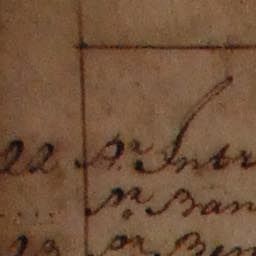 22 Pr. Intr
Pr. Ban
23 Pr Ben